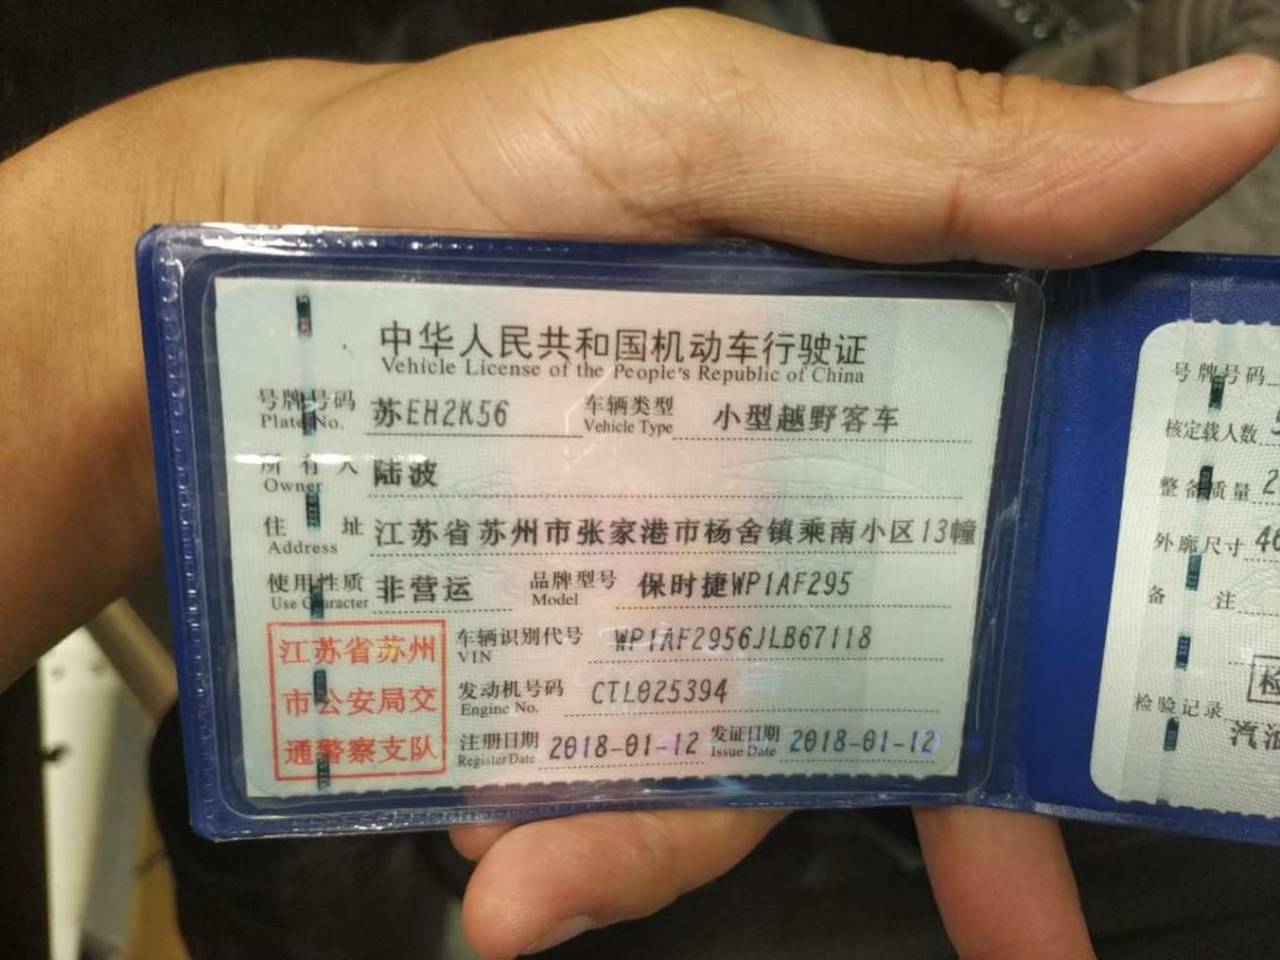 中华人民共和国机动车行驶证
Vehicle License of the People's Republic of China
号牌号码 苏EH2K56 车辆类型 小型越野客车
Plate No. Vehicle Type
所有人 陆波
Owner
住址 江苏省苏州市张家港市杨舍镇乘南小区13幢
Address
使用性质 非营运 品牌型号 保时捷WP1AF295
Use Character Model
江苏省苏州
市公安局交
通警察支队
车辆识别代号 WP1AF2956JLB67118
VIN
发动机号码 CTL025394
Engine No.
注册日期 2018-01-12 发证日期 2018-01-12
Register Date Issue Date
号牌号码
核定载人数
整备质量 2
外廓尺寸 46
备注
检验记录
汽油